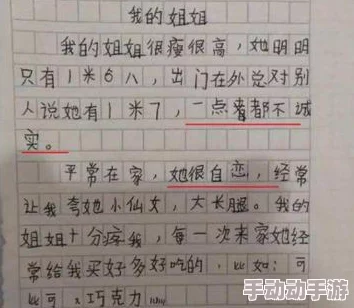 我的姐姐
我的姐姐很瘦很高，她明明
只有1米6八，出门在外总对别
人说她有1米7，一点者都不诚
实。
平常在家，她很自恋，经常
让我夸她小仙女，大长腿。我的
姐姐十分疼我，每一次来家她经
常给我买好多好吃的，比如：可
比可、巧克力
手动动手游